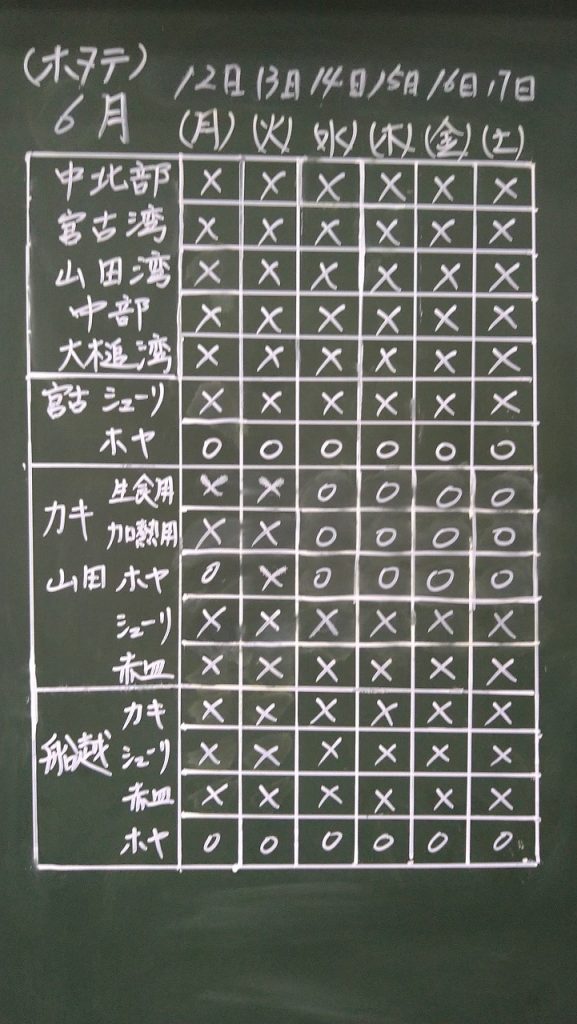 (ホタテ) 12日 13日 14日 15日 16日 17日
6月 (月) (火) (水) (木) (金) (土)
中北部 × × × × × ×
宮古湾 × × × × × ×
山田湾 × × × × × ×
中部 × × × × × ×
大槌湾 × × × × × ×
宮古 シューリ × × × × × ×
ホヤ ○ ○ ○ ○ ○ ○
カキ 生食用 × × ○ ○ ○ ○
加熱用 × × ○ ○ ○ ○
山田 ホヤ ○ × ○ ○ ○ ○
シューリ × × × × × ×
赤皿 × × × × × ×
船越 カキ × × × × × ×
シューリ × × × × × ×
赤皿 × × × × × ×
ホヤ ○ ○ ○ ○ ○ ○